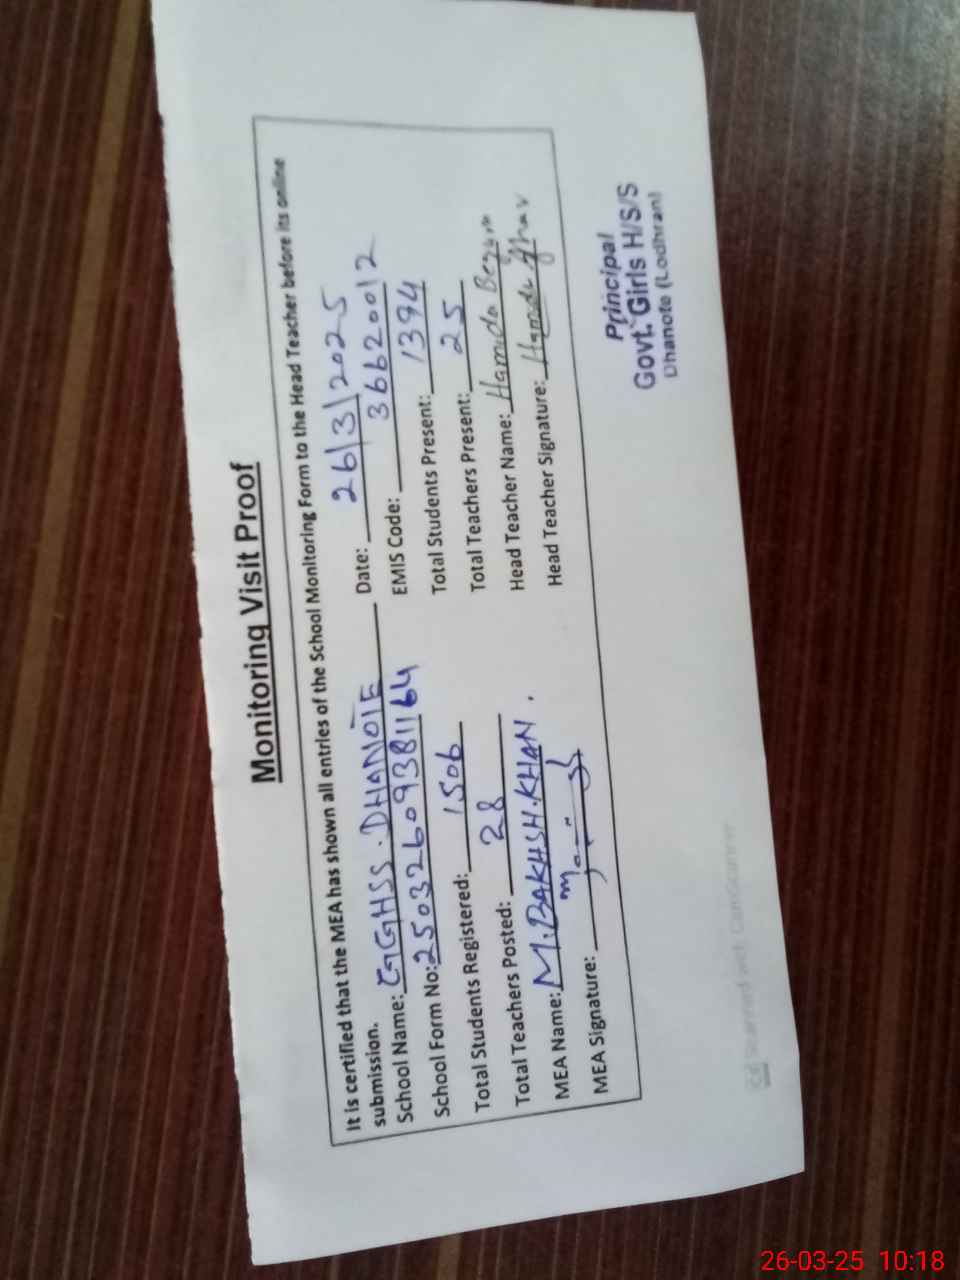 Monitoring Visit Proof
It is certified that the MEA has shown all entries of the School Monitoring Form to the Head Teacher before its online
submission.
School Name: GGHSS. DHANOTE Date: 26/3/2025
School Form No: 25032609381164 EMIS Code: 36620012
Total Students Registered: 1506 Total Students Present: 1394
Total Teachers Posted: 28 Total Teachers Present: 25
MEA Name: M. BAKHSH. KHAN. Head Teacher Name: Hamida Begum
MEA Signature: Head Teacher Signature: Hamida
Principal
Govt. Girls H/S/S
Dhanote (Lodhran)
CS Scanned with CamScanner
26-03-25 10:18